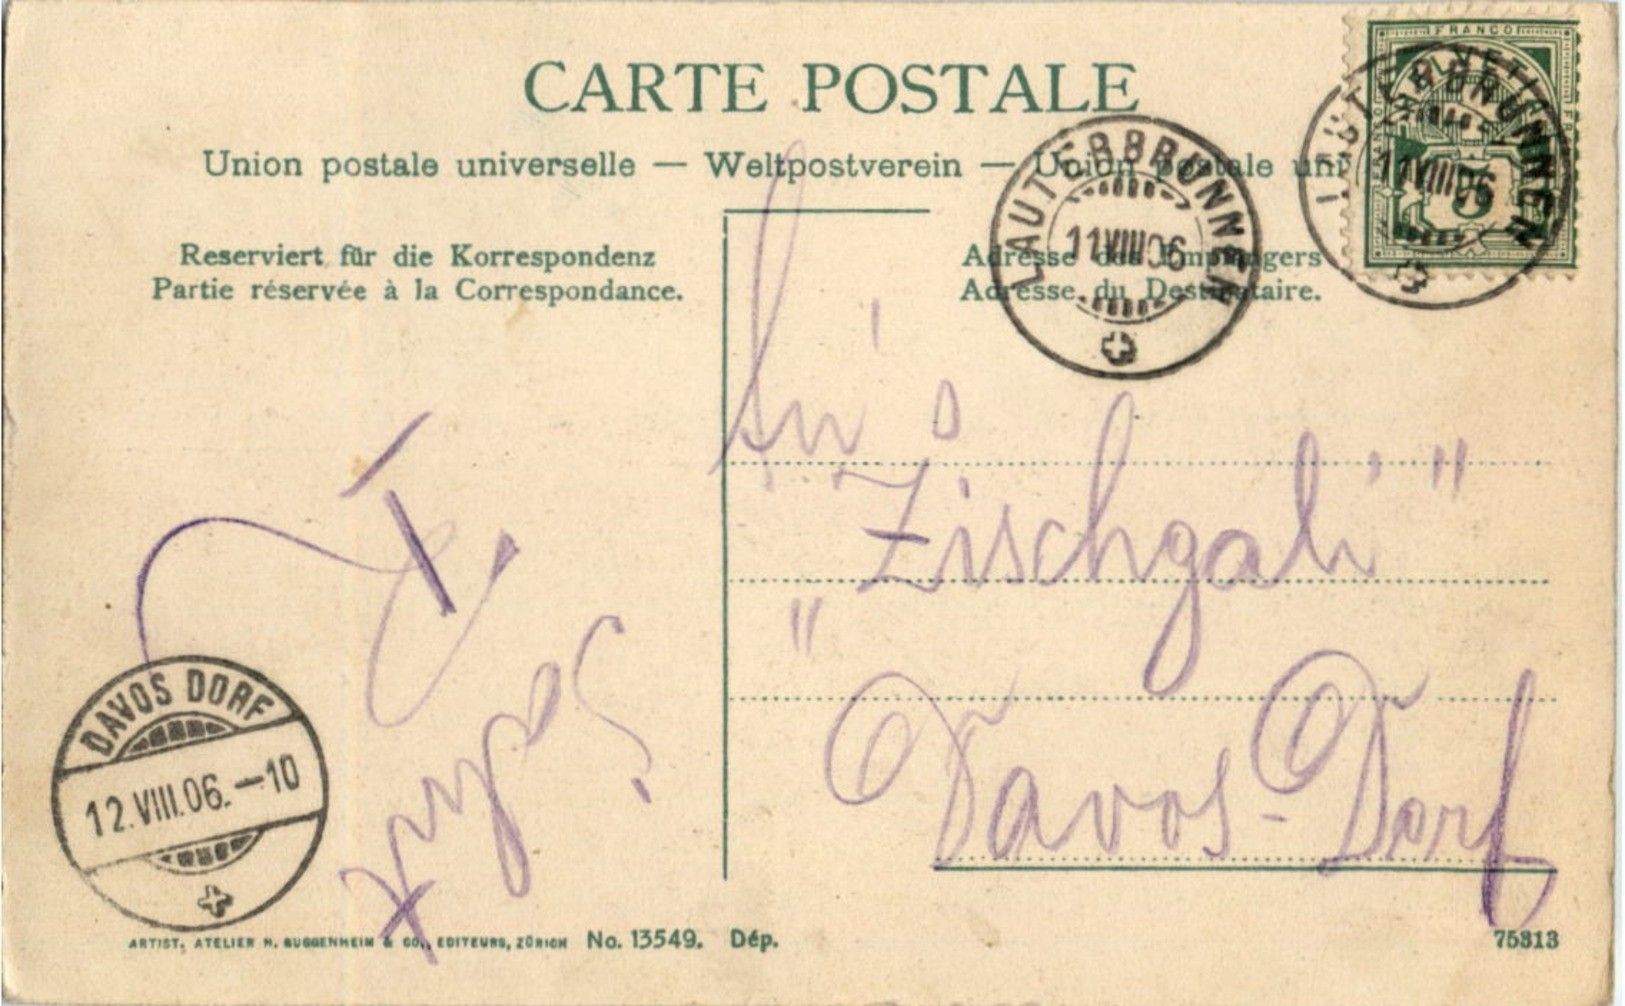 CARTE POSTALE
Union postale universelle — Weltpostverein — Union postale uni
Reserviert für die Korrespondenz
Partie réservée à la Correspondance.
Adresse des Empfängers
Adresse du Destinataire.
FRANCO
HELVETIA
LAUTERBRUNNEN
11 VIII 06
LAUTERBRUNNEN
11 VIII 06
5
An's
"Zischgali"
Davos-Dorf
DAVOS DORF
12.VIII.06.–10
ARTIST. ATELIER H. GUGGENHEIM & CO., EDITEURS, ZÜRICH No. 13549. Dép.
75313